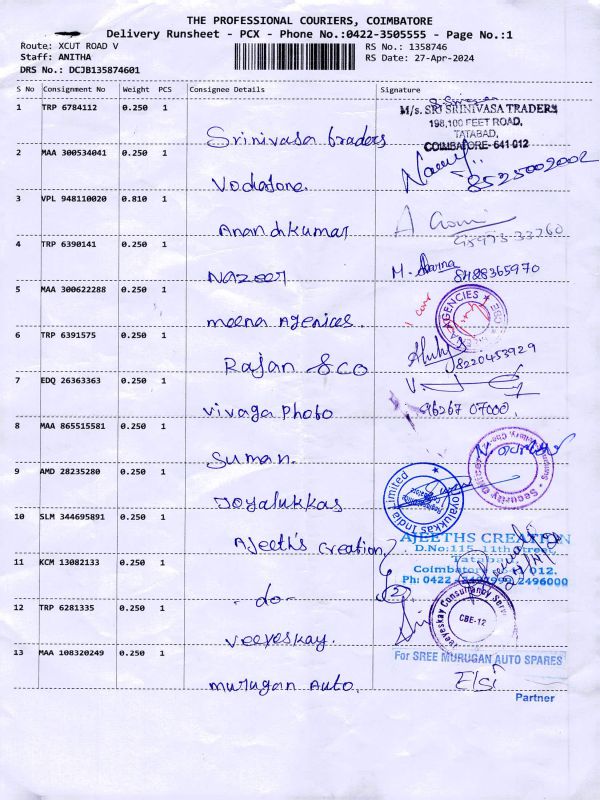 THE PROFESSIONAL COURIERS, COIMBATORE
Delivery Runsheet - PCX - Phone No.:0422-3505555 - Page No.:1
Route: XCUT ROAD V
RS No.: 1358746
Staff: ANITHA
RS Date: 27-Apr-2024
DRS No.: DCJB135874601
S No Consignment No Weight PCS Consignee Details Signature
1 TRP 6784112 0.250 1
M/s. SRI SRINIVASA TRADERS
198,100 FEET ROAD,
TATABAD,
COIMBATORE- 641 012
Srinivasa traders
2 MAA 300534041 0.250 1
8525002002
Vodafone.
3 VPL 948110020 0.810 1
Anandhkumar
4 TRP 6390141 0.250 1
Nazeer
8488365970
5 MAA 300622288 0.250 1
AGENCIES
meena Agenices.
6 TRP 6391575 0.250 1
Rajan & co
8220453929
7 EDQ 26363363 0.250 1
Vivaga Photo
96267 07000.
8 MAA 865515581 0.250 1
Suman.
9 AMD 28235280 0.250 1
Security Officer
Joyalukkas India Limited
Joyalukkas
10 SLM 344695891 0.250 1
AJEETHS CREATION
D.No:115, 11th Street,
Tatabad
Coimbatore 012.
Ph: 0422 2496000
Ajeeth's creation
11 KCM 13082133 0.250 1
-do-
2
12 TRP 6281335 0.250 1
Veeyeskay Consultancy Serv
CBE-12
Veeyeskay.
13 MAA 108320249 0.250 1
For SREE MURUGAN AUTO SPARES
murugan Auto.
Partner